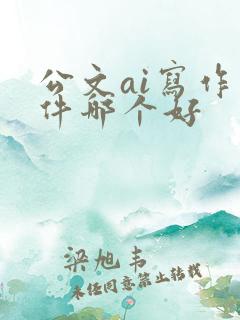 公文ai寫作
件哪个好
梁旭韦
未经同意禁止转载